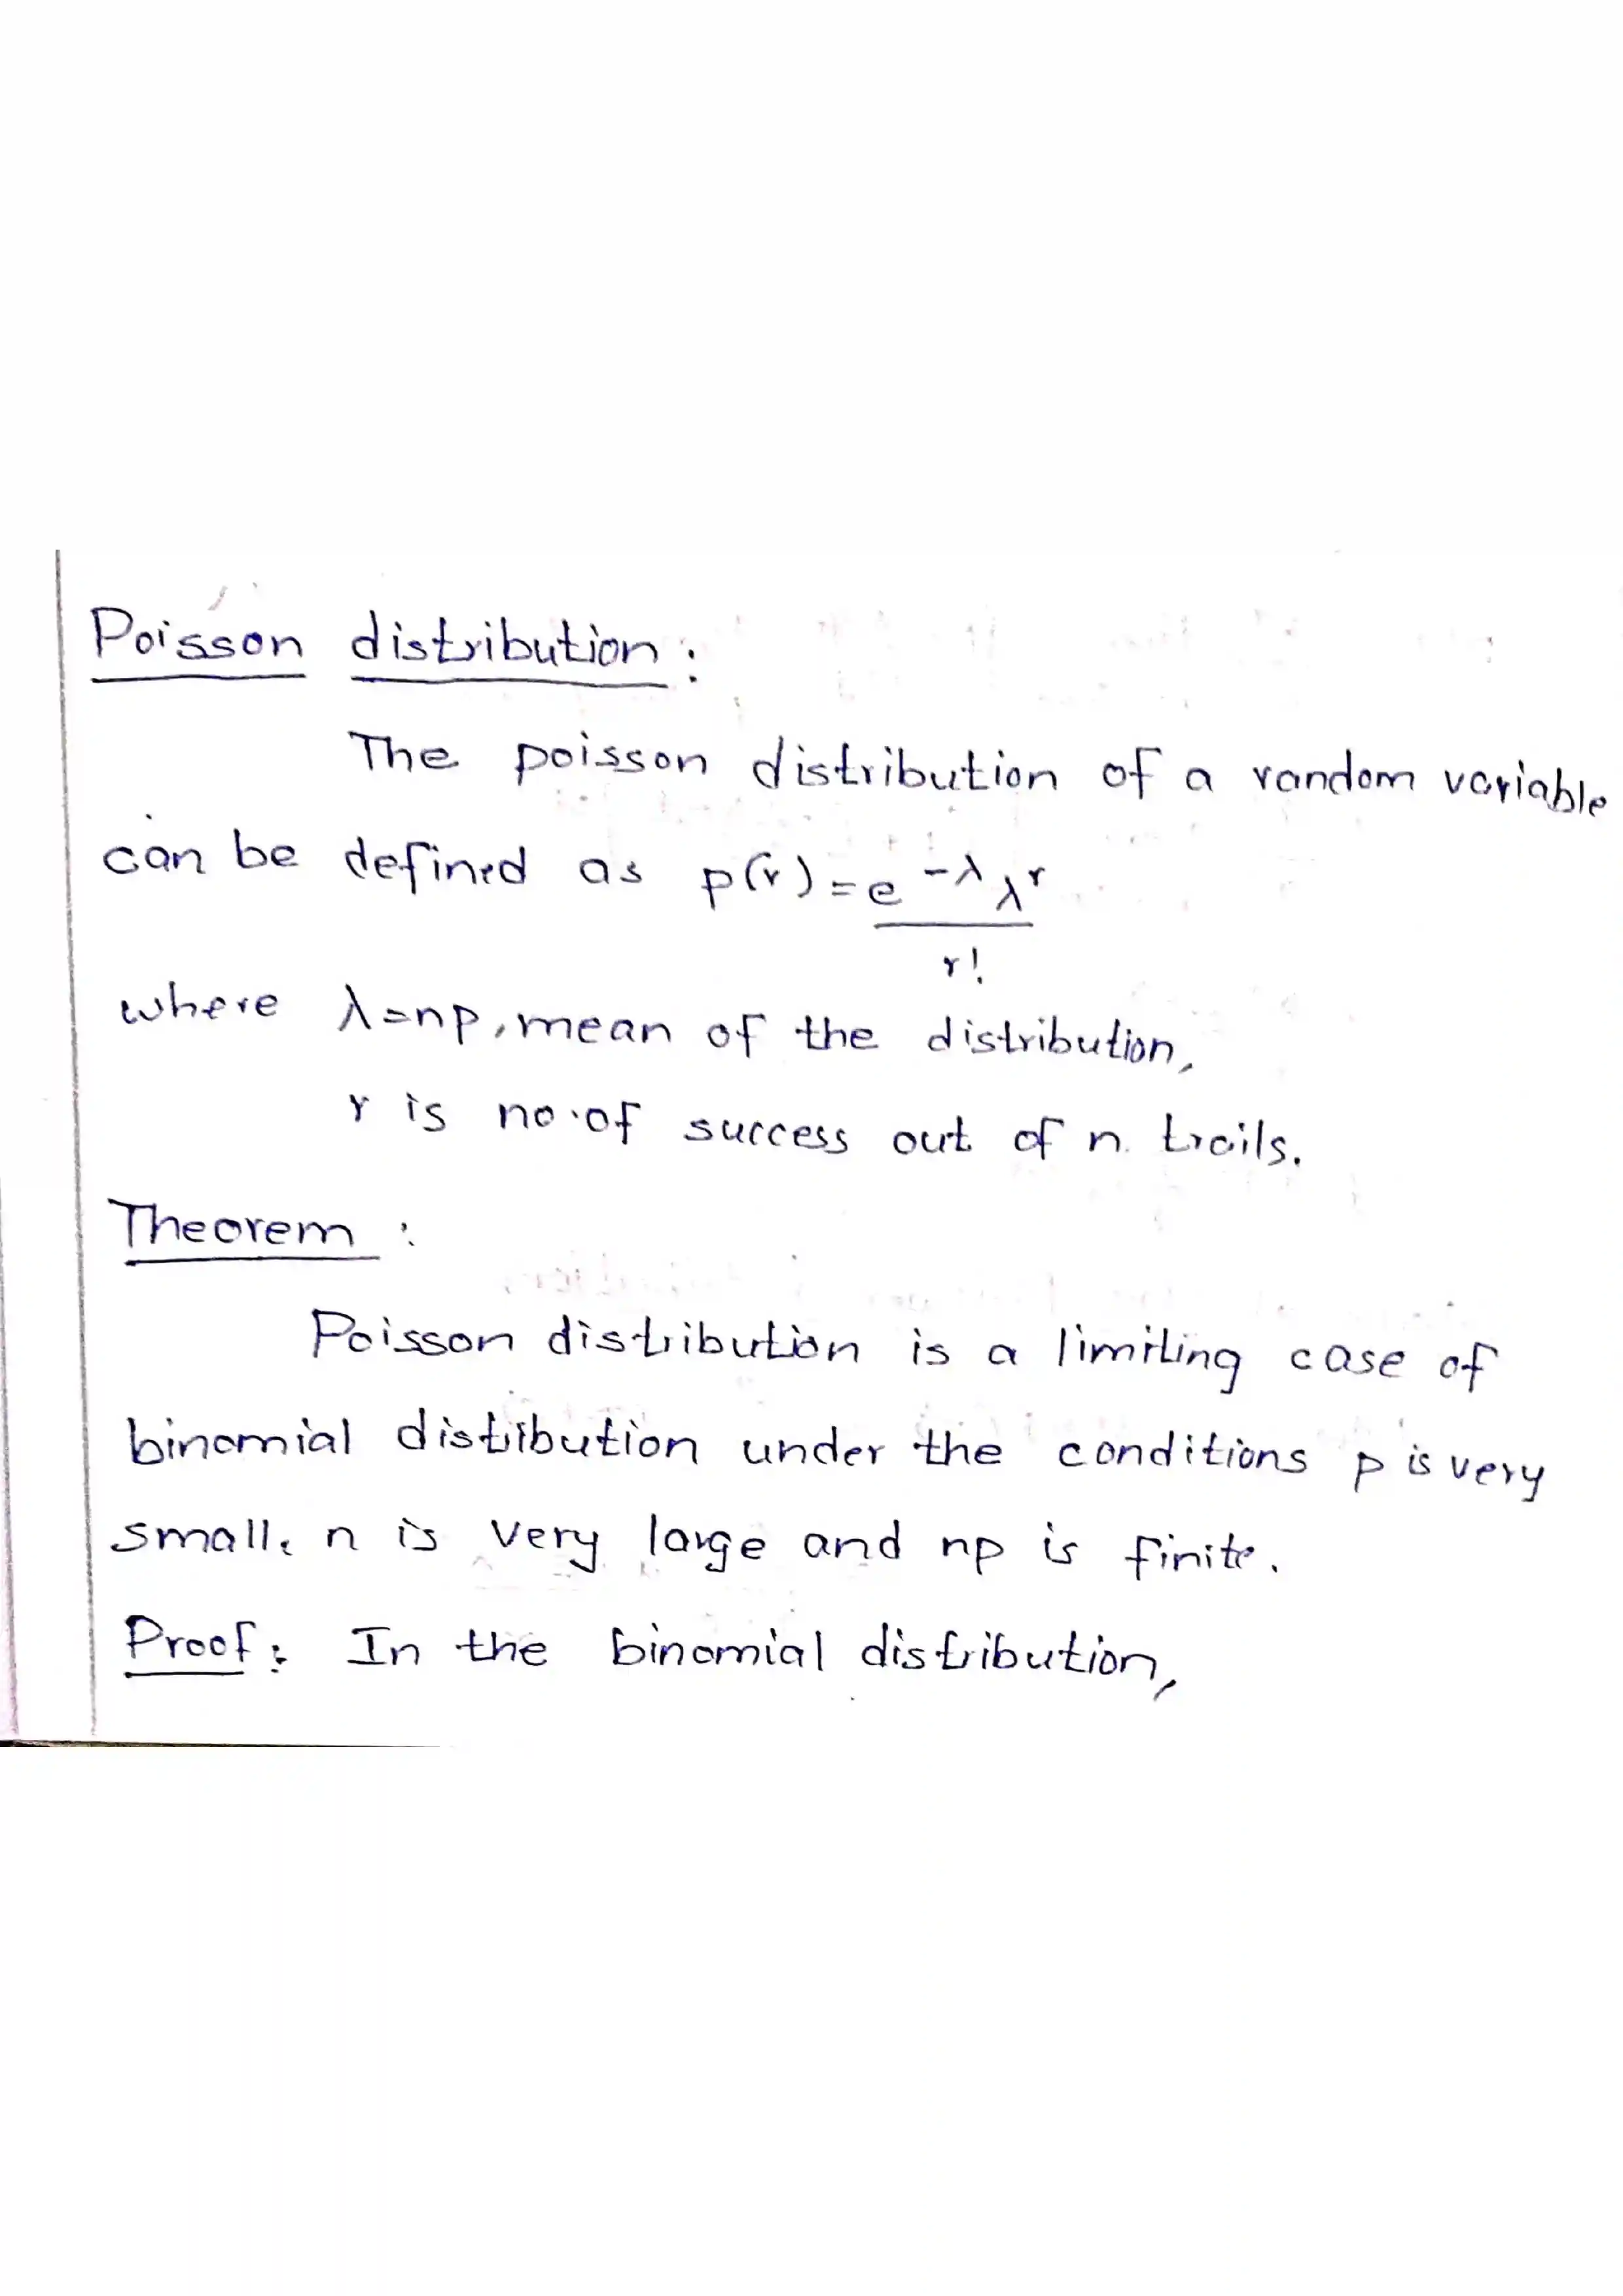 Poisson distribution :
The poisson distribution of a random variable
can be defined as p(r) = e^{-λ} λ^r
r!
where λ=np, mean of the distribution,
r is no.of success out of n trails.
Theorem :
Poisson distribution is a limiting case of
binomial distribution under the conditions p is very
small, n is very large and np is finite.
Proof : In the binomial distribution,